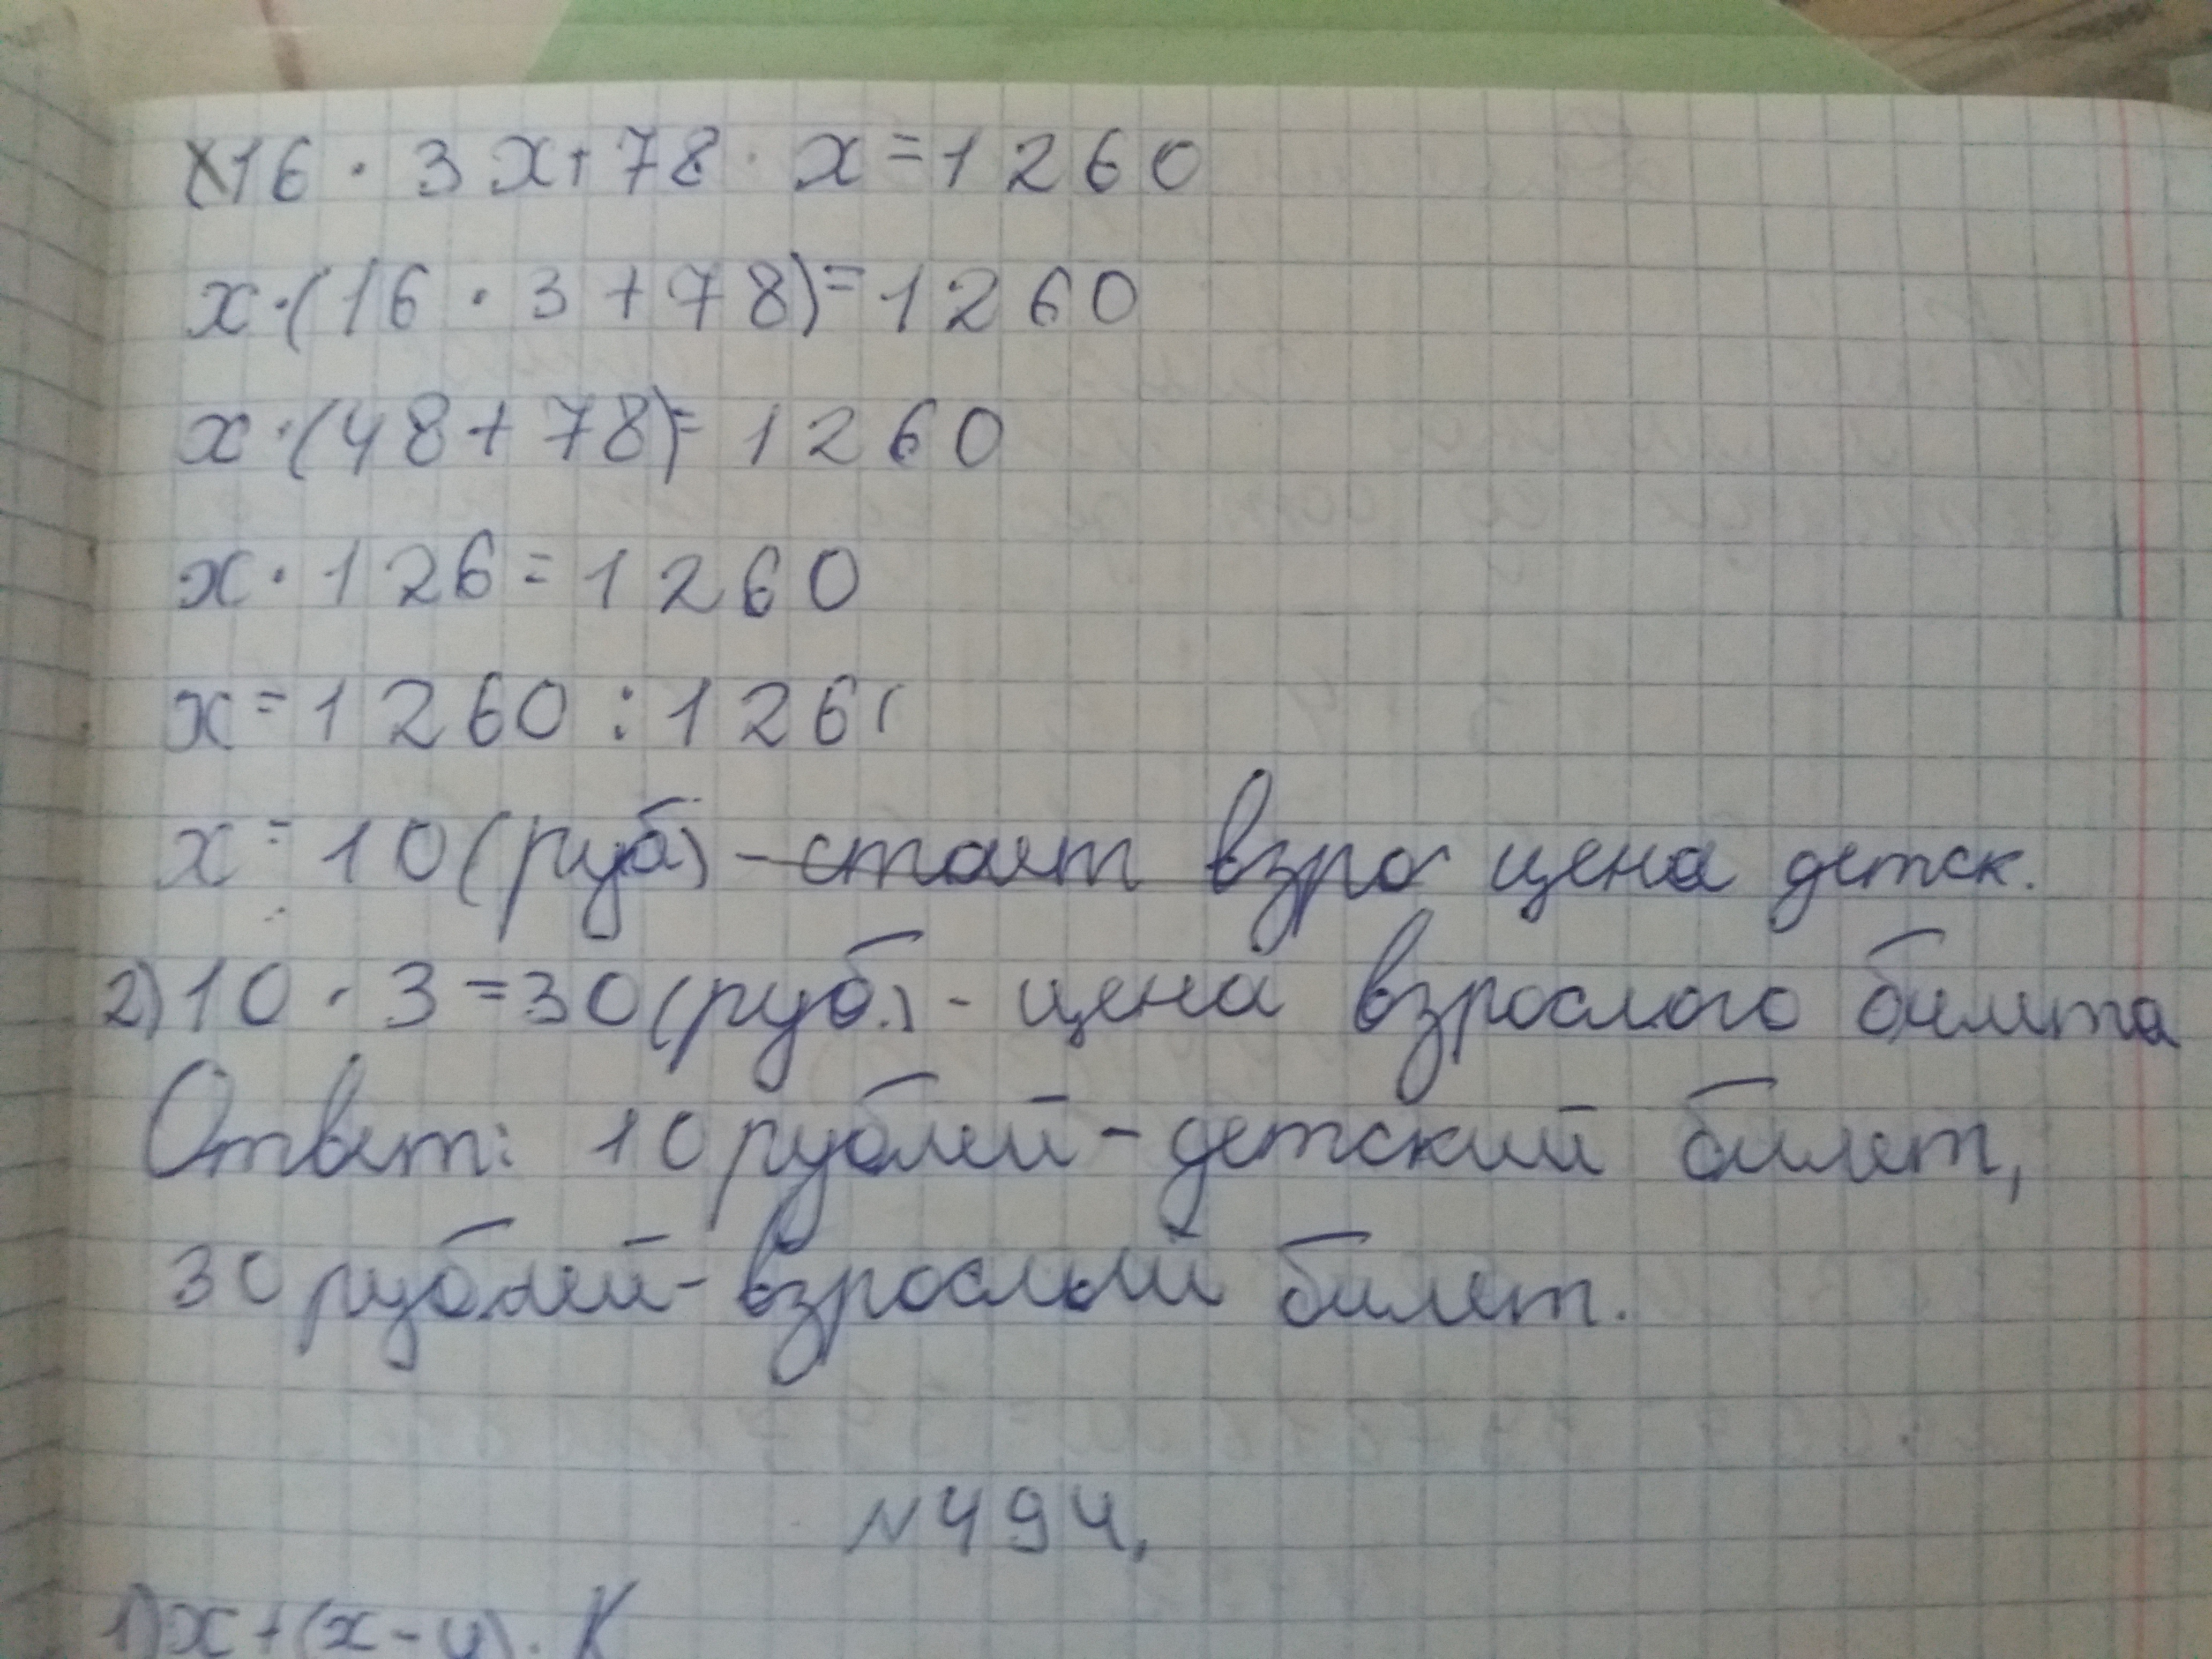 16 · 3x + 78 · x = 1260
x · (16 · 3 + 78) = 1260
x · (48 + 78) = 1260
x · 126 = 1260
x = 1260 : 126
x = 10 (руб) - стоит взро цена детск.
2) 10 · 3 = 30 (руб.) - цена взрослого билета
Ответ: 10 рублей - детский билет,
30 рублей - взрослый билет.
№494.
1) x + (x - y) · K